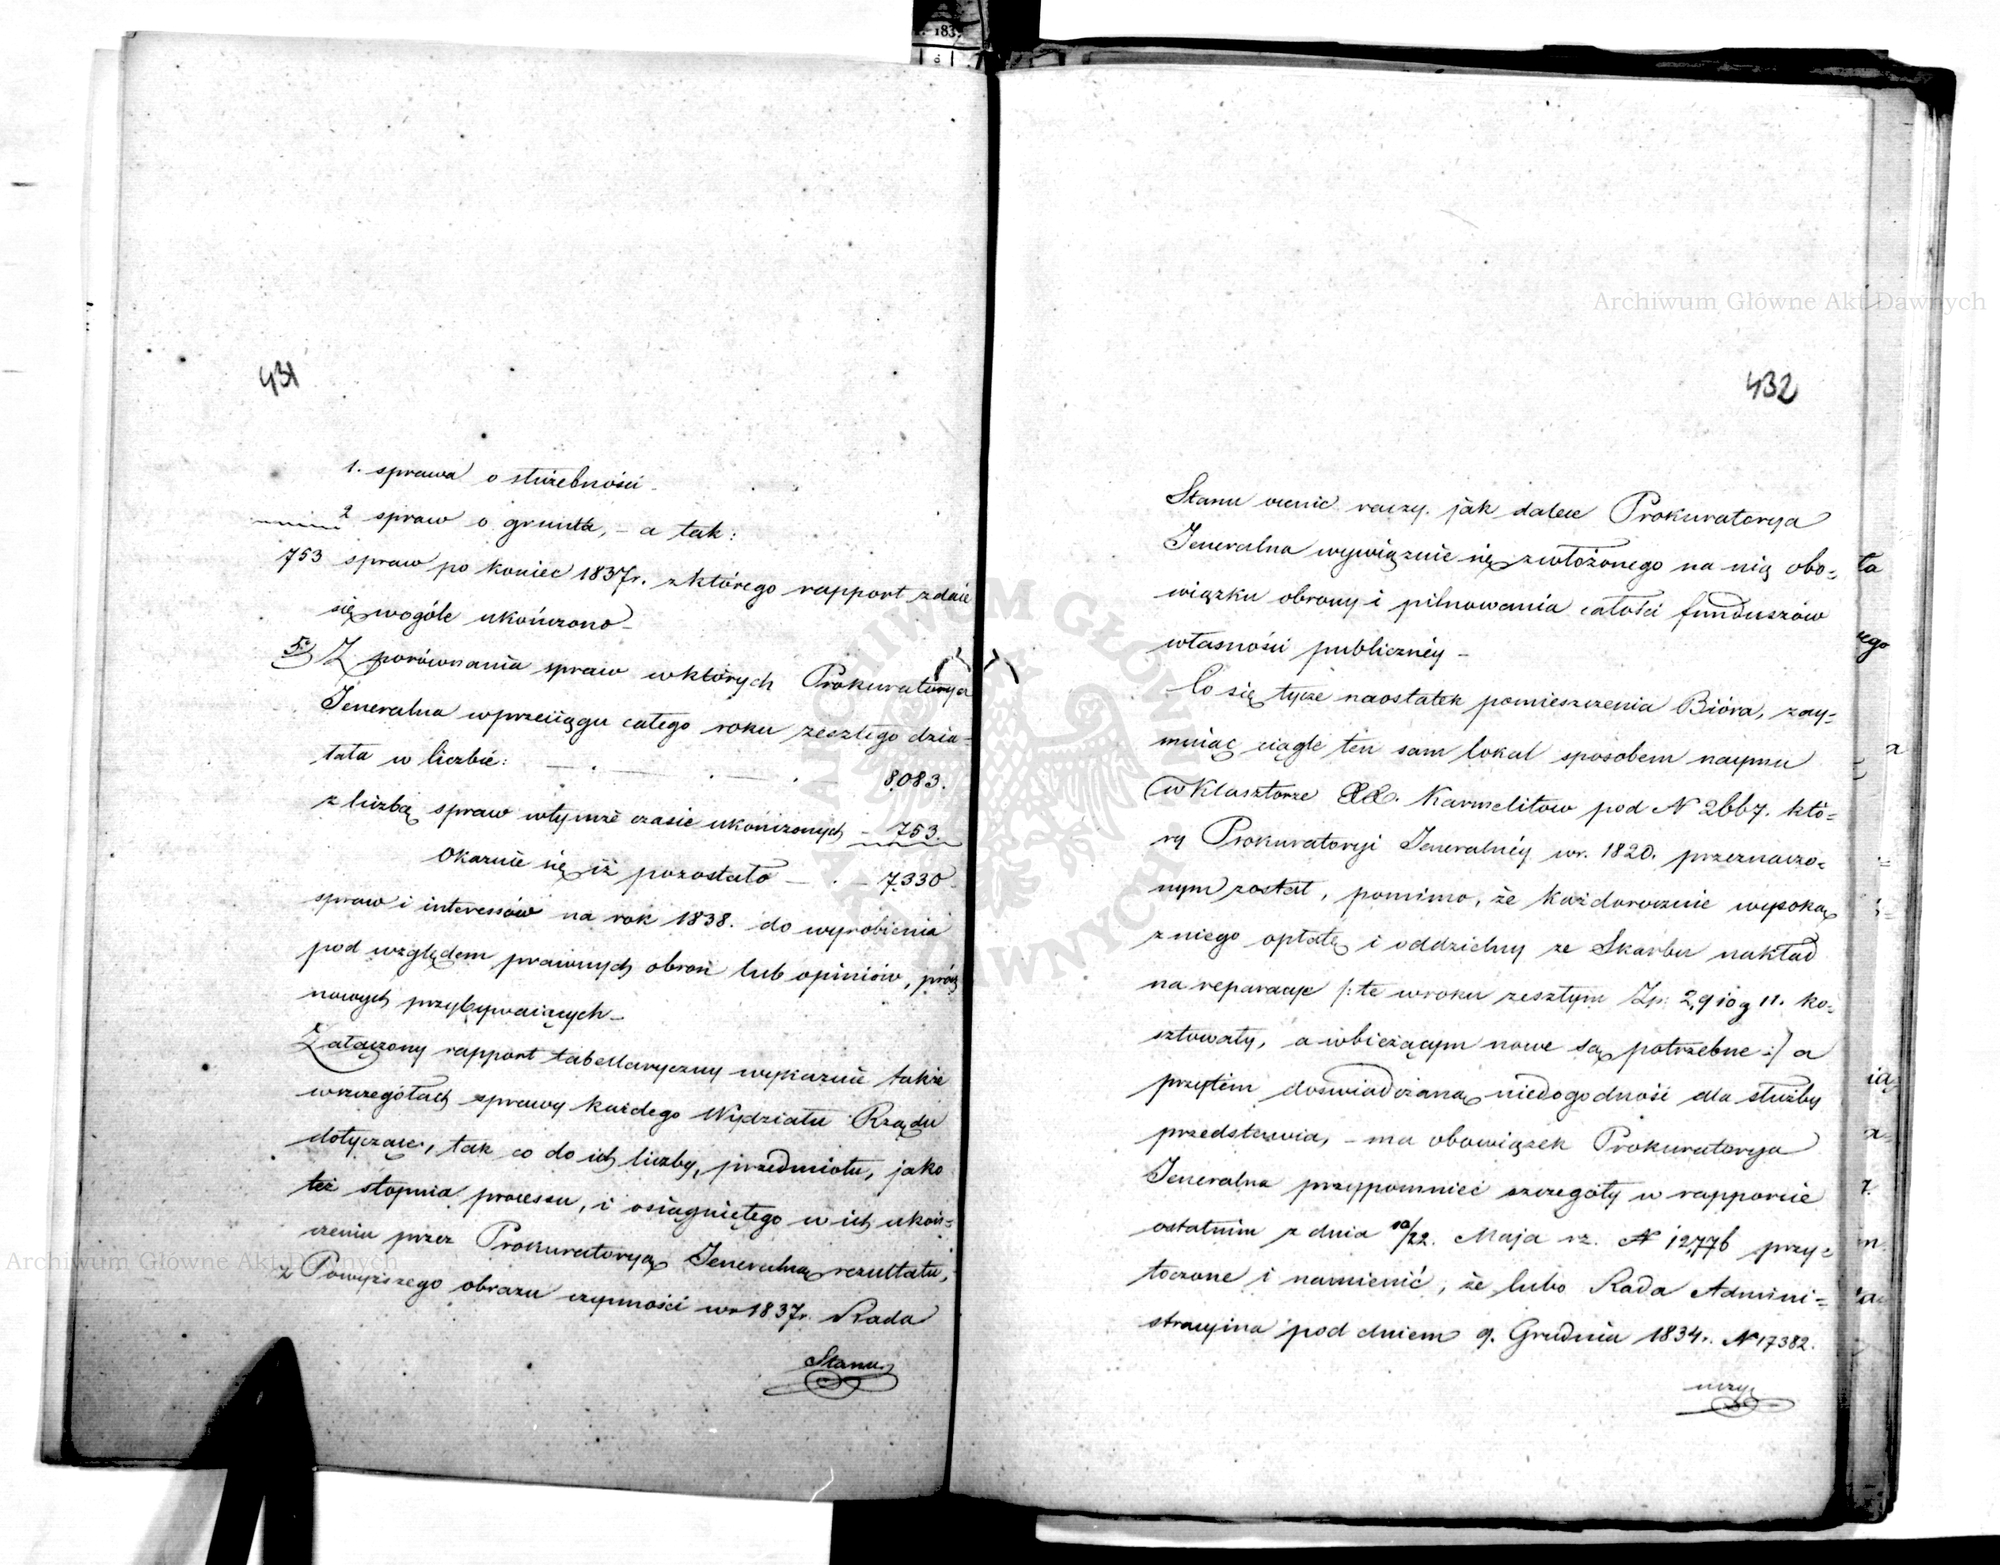 183
431
1. sprawa o służebności.
2 spraw o grunta, – a tak:
753 spraw po koniec 1837r. z którego rapport zdaie
się wogóle ukończono –
5. Z porównania spraw wktórych Prokuratorya
Jeneralna wprzeciągu całego roku zeszłego dzia-
łała w liczbie: — . — . — . 8,083.
z liczbą spraw wtymże czasie ukończonych – 753.
Okazuie się iż pozostało — . — 7,330
spraw i interessów na rok 1838. do wyrobienia
pod względem prawnych obron lub opiniów, prócz
nowych przybywaiących –
Załączony rapport tabellaryczny wykazuie także
wszczegółach sprawy każdego Wydziału Rządu
dotyczące, tak co do ich liczby, przedmiotu, jako
też stopnia processu, i osiągniętego w ich ukoń-
czeniu przez Prokuratoryą Jeneralną rezultatu,
z Powyższego obrazu czynności wr 1837r. Rada
Stanu
432
Stanu ocenić raczy. jak dalece Prokuratorya
Jeneralna wywiązuie się zwłożonego na nią obo-
wiązku obrony i pilnowania całości funduszów
własności publiczney –
Co się tycze naostatek pomieszczenia Bióra, zay-
muiąc ciągle ten sam lokal sposobem naymu
w Klasztorze XX. Karmelitow pod N 2667. któ-
ry Prokuratoryi Jeneralnéy wr. 1820. przeznaczo-
nym został, pomimo, że każdorocznie wysoką
z niego opłatę i oddzielny ze Skarbu nakład
na reparacye /: te wroku zeszłym Zp: 2,910 g 11. ko-
sztowały, a wbieżącym nowe są potrzebne :/ a
przytém doświadczaną niedogodność dla służby
przedstawia, – ma obowiązek Prokuratorya
Jeneralna przypomnieć szczegóły w rapporcie
ostatnim z dnia 10/22. Maja rz. N 12,776 przy-
toczone i namienić, że lubo Rada Admini-
stracyina pod dniem 9. Grudnia 1834r. N 17382.
Archiwum Główne Akt Dawnych
Archiwum Główne Akt Dawnych
ARCHIWUM GŁÓWNE AKT DAWNYCH